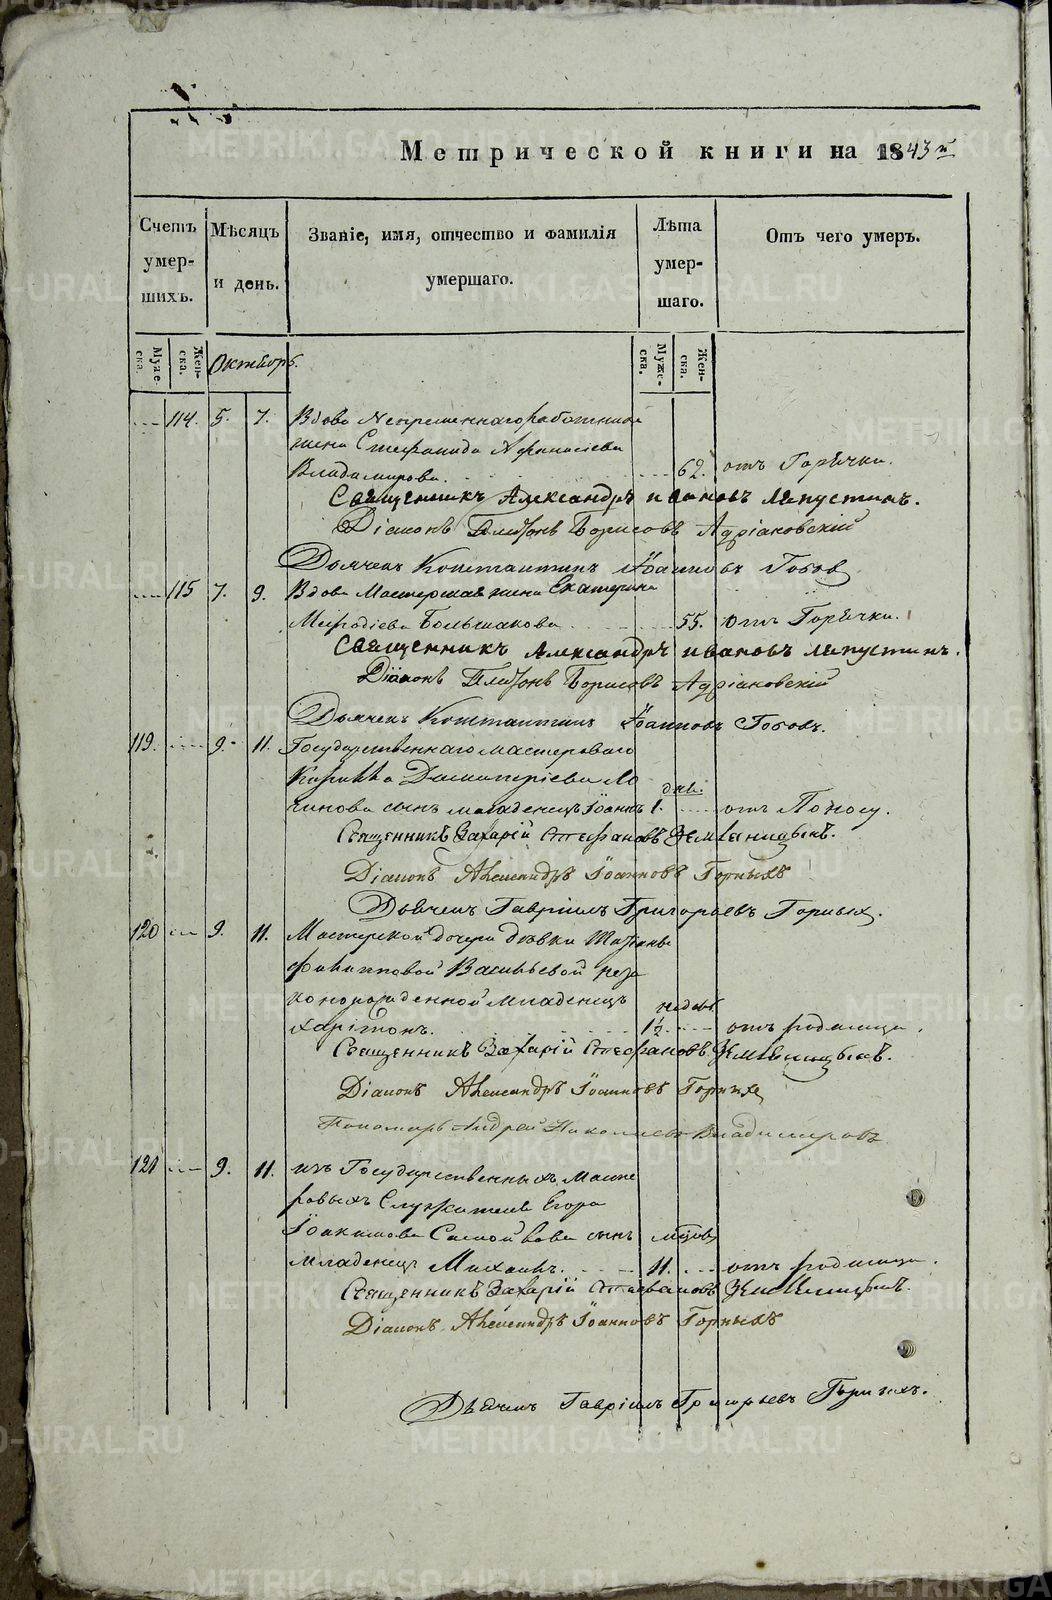 Метрической книги на 1843 й
Счетъ умер- шихъ.
Мѣсяцъ и день.
Званіе, имя, отчество и фамилія умершаго.
Лѣта умер- шаго.
Отъ чего умеръ.
Муже ска. Жен- ска. Октябрь. Муже- ска. Жен- ска.
114. 5. 7. Вдова Непременнаго работника
жена Стефанида Афанасіева
Владимирова. 62. отъ Горѣчки.
Священникъ Александръ Ивановъ Лапустинъ.
Діаконъ Платонъ Борисовъ Адріановскій
Дьячекъ Константинъ Іоанновъ Гобов
115 7. 9. Вдова Мастерская жена Екатерина
Мефодіева Большакова 55. отъ Горѣчки.
Священникъ Александръ Ивановъ Лапустинъ.
Діаконъ Платонъ Борисовъ Адріановскій
Дьячекъ Константинъ Іоанновъ Гобовъ.
119. 9. 11. Государственнаго мастероваго
Димитріева Ло
гинова сынъ младенецъ Іоаннъ 1. дни. отъ Поносу.
Священникъ Захарій Стефановъ Земляницынъ.
Діаконъ Александръ Іоанновъ Горныхъ
Дьячекъ Гавріилъ Григорьевъ Горных.
120 9. 11. Мастерской дочери дѣвки Татіаны
Филипповой Васильевой неза
конорожденной младенецъ
Харітонъ. 1½ недѣл отъ родимца.
Священникъ Захарій Стефановъ Земляницынъ.
Діаконъ Александръ Іоанновъ Горныхъ
Пономарь Андрей Николаевъ Владимировъ
121 9. 11. изъ Государственныхъ Масте
ровыхъ Служителя Егора
Іоакимова Самойлова сынъ
младенецъ Михаилъ. 11. мѣсяц отъ родимца.
Священникъ Захарій Стефановъ Земляницынъ.
Діаконъ Александръ Іоанновъ Горныхъ
Дьячекъ Гавріилъ Григорьевъ Горныхъ.
METRIKI.GASO-URAL.RU